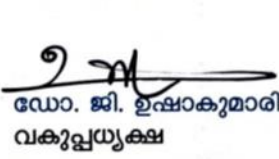 ഡോ. ജി. ഉഷാകുമാരി
വകുപ്പധ്യക്ഷ